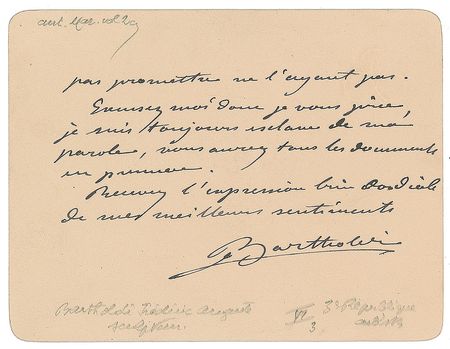 aut. Mar. vol 29
pas promettre ne l'ayant pas.
Excusez moi donc je vous prie,
je suis toujours esclave de ma
parole, vous aurez tous les documents
en
Recevez l'expression bien cordiale
de mes meilleurs sentiments
Bartholdi
Bartholdi Frédéric Auguste
sculpteur.
VI
3
3e République
artistes